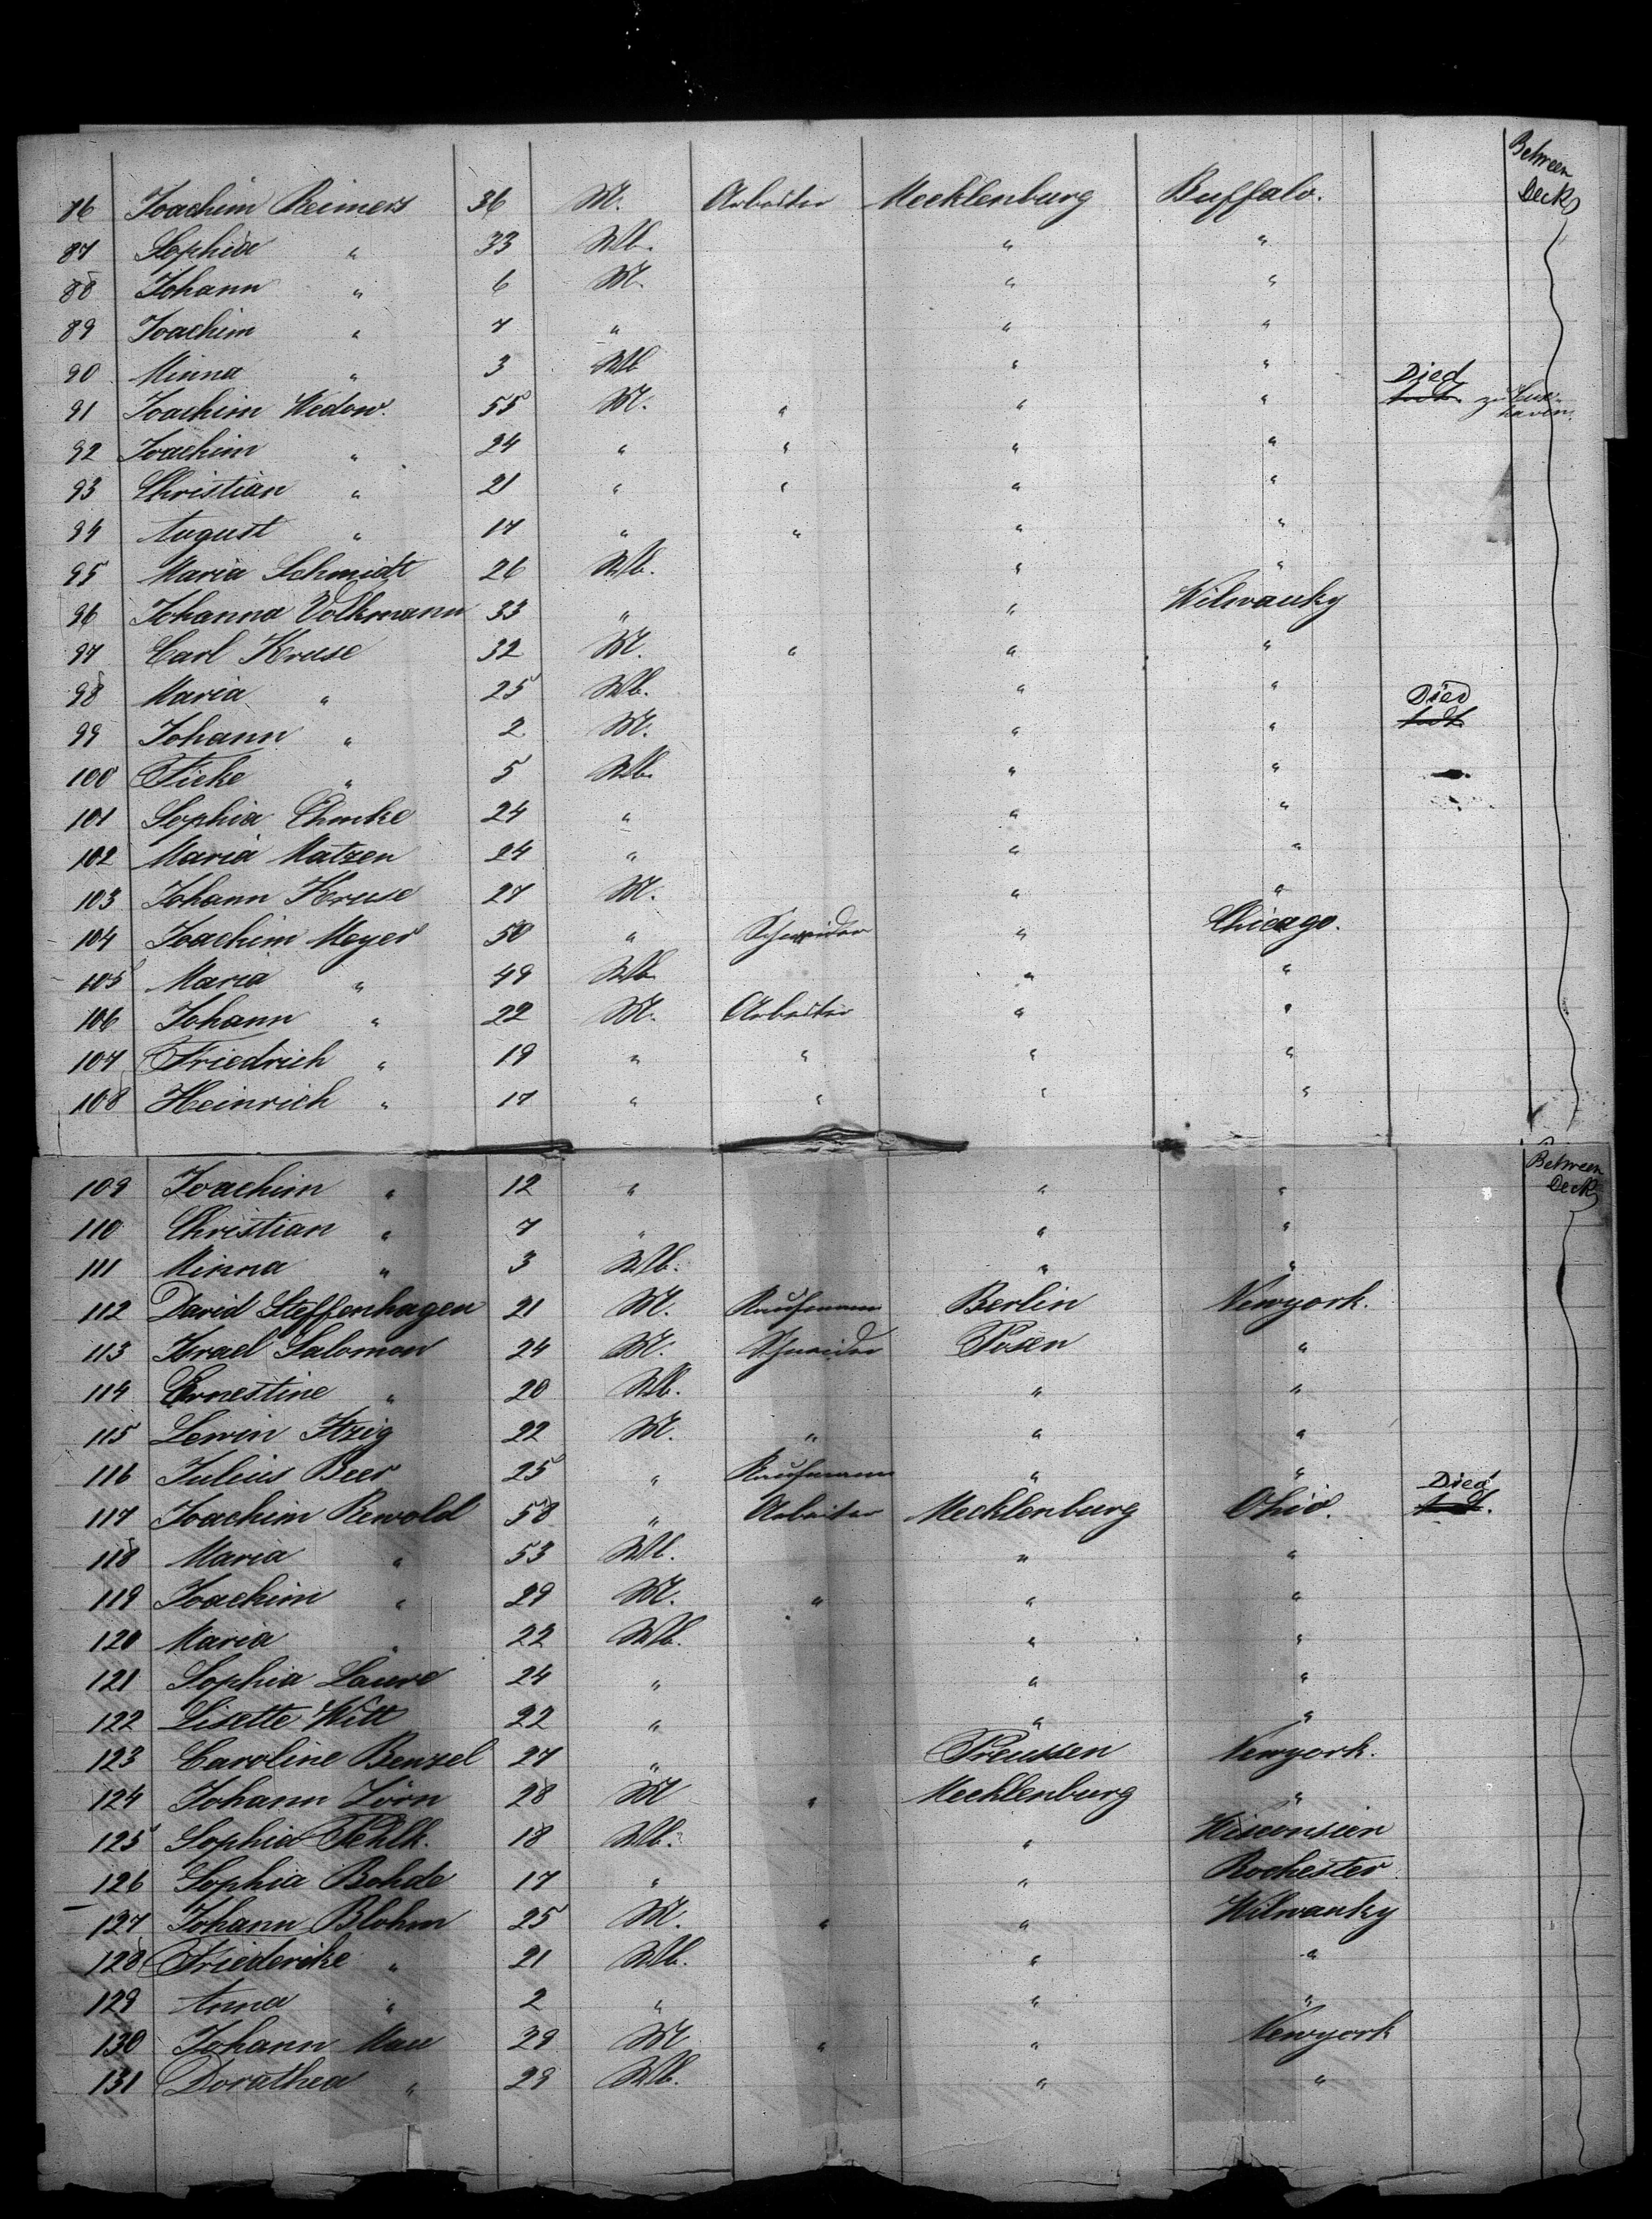 Between Decks
86 Joachim Reimers 36 M. Arbeiter Mecklenburg Buffalo.
87 Sophia " 33 Wb. " "
88 Johann " 6 M. " "
89 Joachim " 7 " " "
90 Minna " 3 Wb " "
91 Joachim Wedow. 55 M. " " " Died todt zu Cux-haven.
92 Joachim " 24 " " " "
93 Christian " 21 " " " "
94 August " 17 " " " "
95 Maria Schmidt 26 Wb. " "
96 Johanna Volkmann 33 " " Wilwauky
97 Carl Kruse 32 M. " " "
98 Maria " 25 Wb. " "
99 Johann " 2 M. " " Died todt
100 Fieke " 5 Wb. " "
101 Sophia Ehmke 24 " " "
102 Maria Matzen 24 " " "
103 Johann Kruse 27 M. " "
104 Joachim Meyer 50 " Schneider " Chicago.
105 Maria " 49 Wb. " "
106 Johann " 22 M. Arbeiter " "
107 Friedrich " 19 " " " "
108 Heinrich " 17 " " " "
Between Decks
109 Joachim " 12 " " "
110 Christian " 7 " " "
111 Minna " 3 Wb. " "
112 David Steffenhagen 21 M. Kaufmann Berlin Newyork.
113 Israel Salomon 24 M. Schneider Posen "
114 Ernestine " 20 Wb. " "
115 Lewin Itzig 22 M. " " "
116 Julius Beer 25 " Kaufmann " "
117 Joachim Rewold 58 " Arbeiter Mecklenburg Ohio. Died todt.
118 Maria " 53 Wb. " "
119 Joachim " 29 M. " " "
120 Maria " 22 Wb. " "
121 Sophia Lauve 24 " " "
122 Lisette Witt 22 " " "
123 Caroline Benzel 27 " Preussen Newyork.
124 Johann Zörn 28 M " Mecklenburg "
125 Sophia Pehlk. 18 Wb. " Wisconsien
126 Sophia Bohde 17 " " Rochester
127 Johann Blohm 25 M. " " Wilwauky
128 Friederike " 21 Wb. " "
129 Anna " 2 " " "
130 Johann Mau 29 M " " Newyork
131 Dorathea " 29 Wb. " "